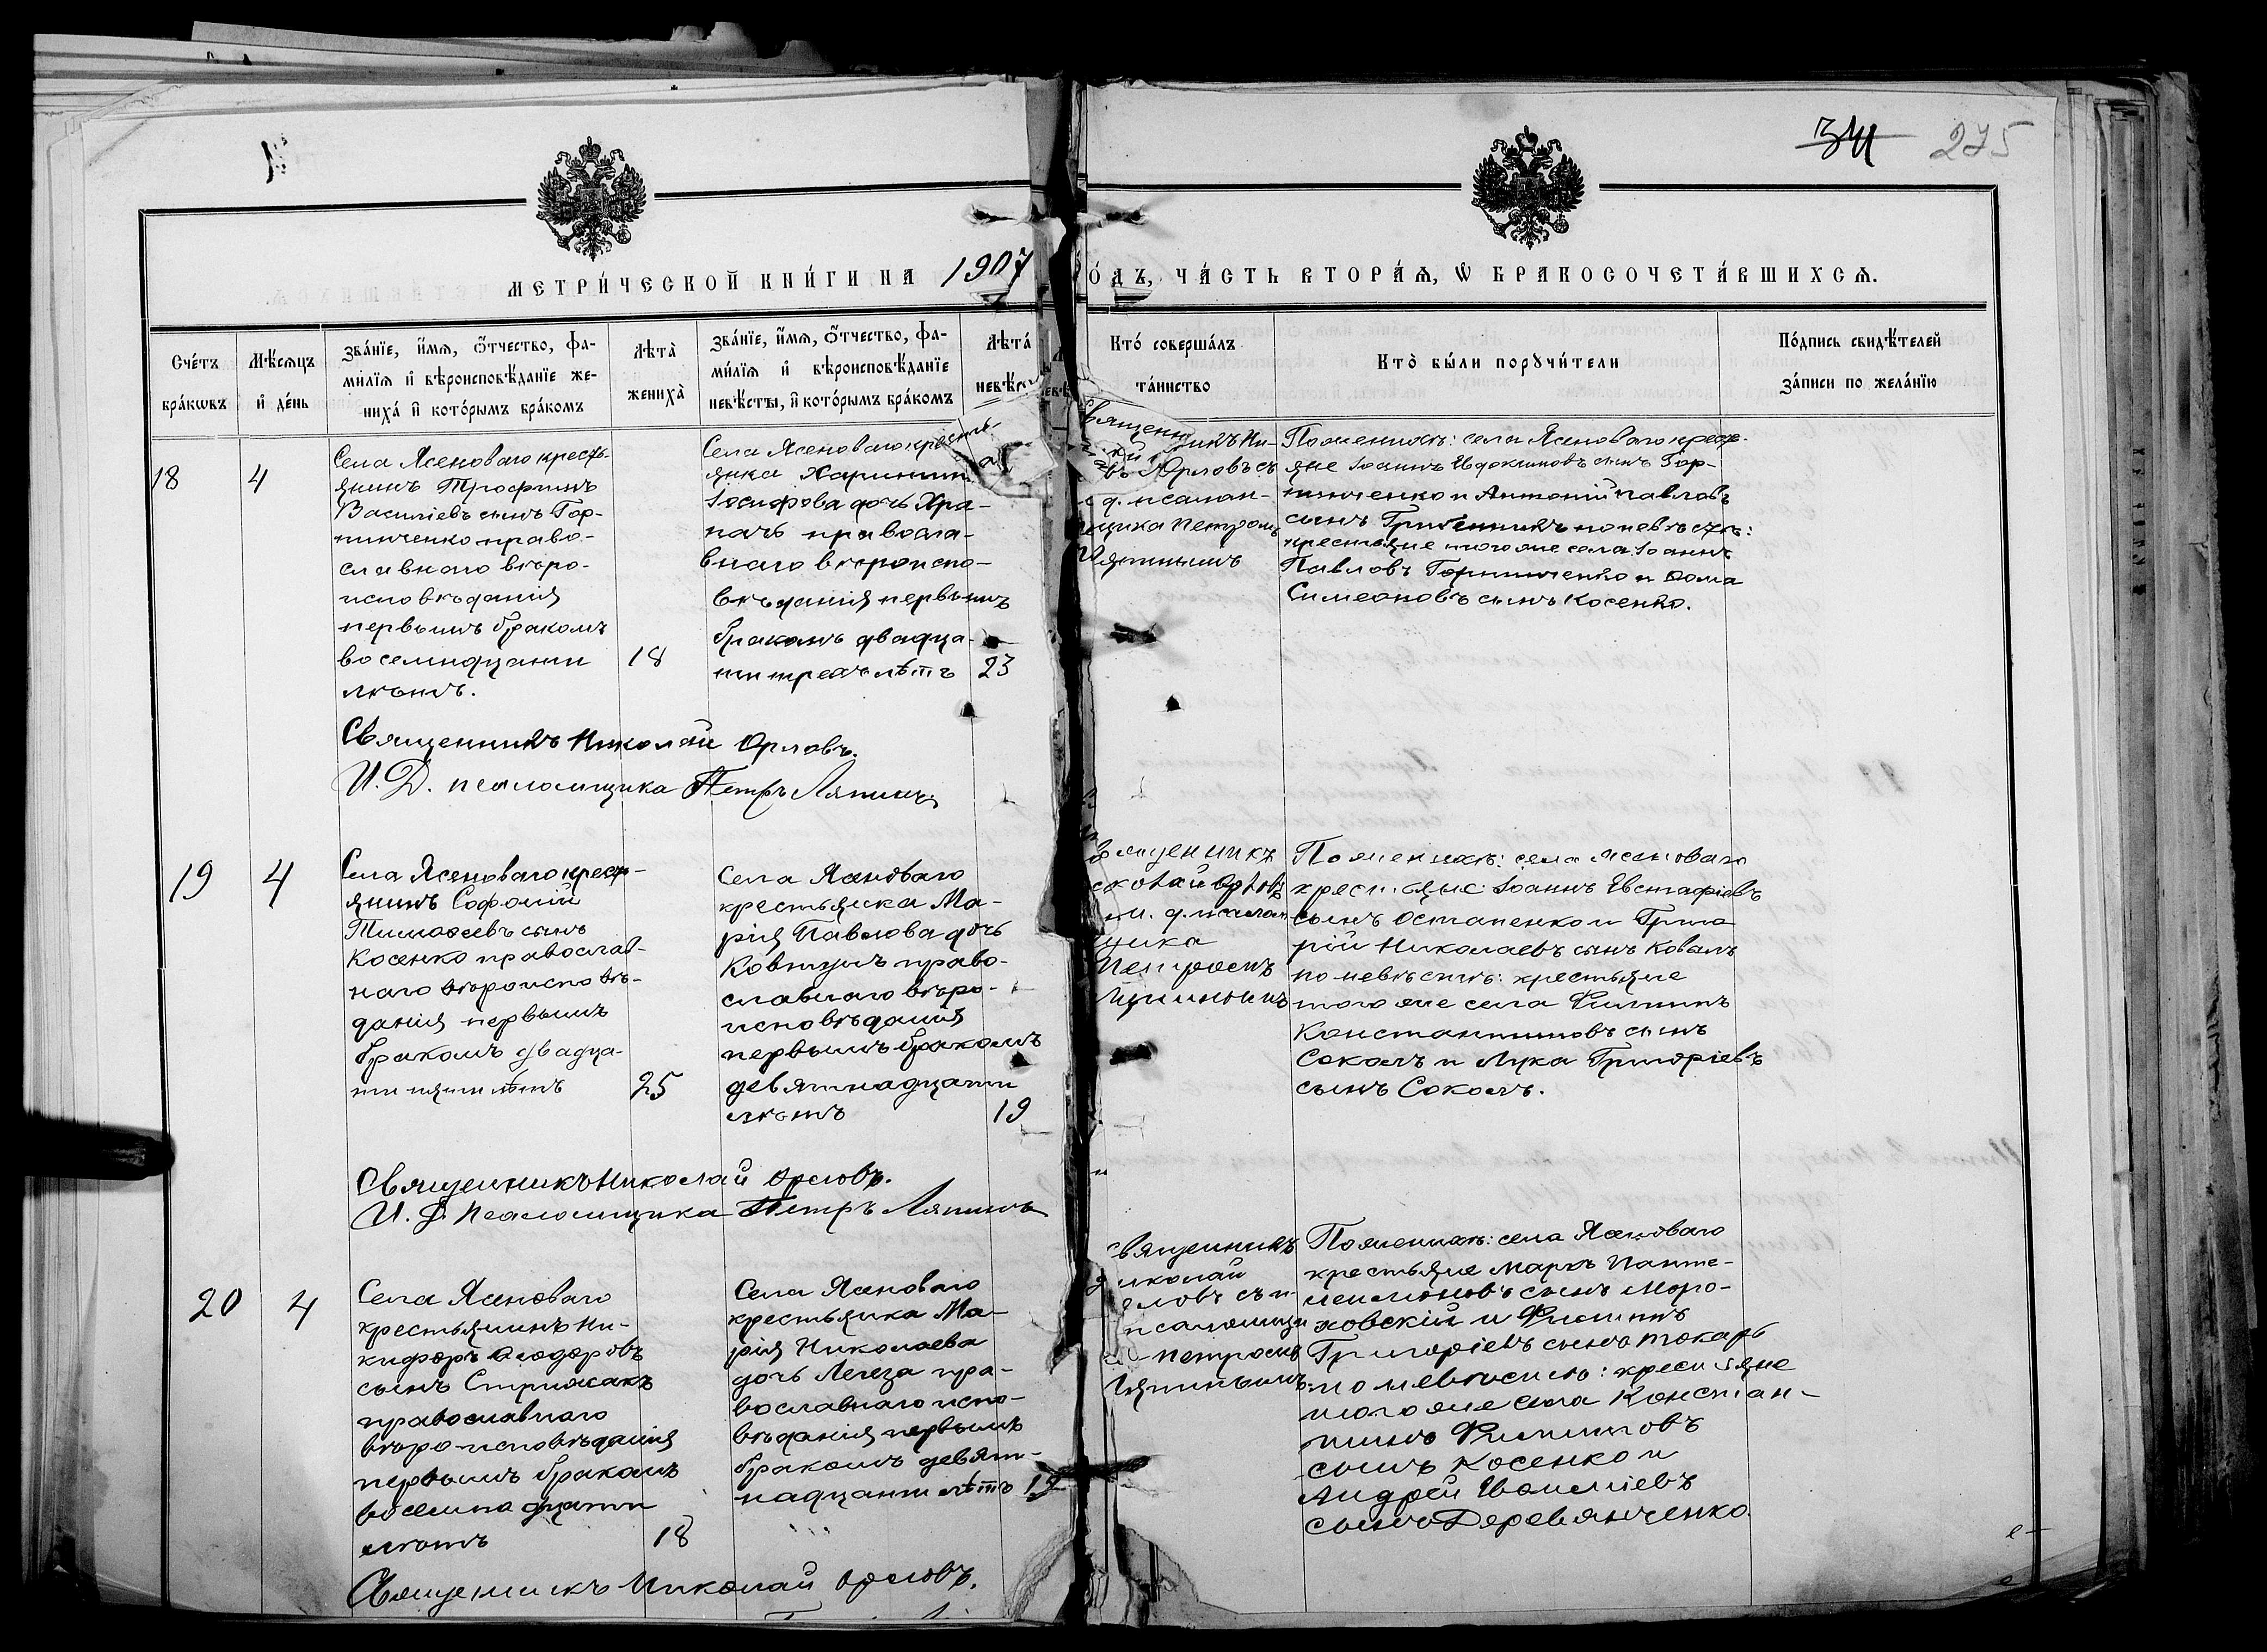 34 275
МЕТРИ́ЧЕСКОЙ КНИ́ГИ НА 1907 ГО́ДЪ, ЧА́СТЬ ВТОРА́Ѧ, Ѽ БРАКОСОЧЕТА́ВШИХСѦ.
Сче́тъ
бра́кѡвъ
Мѣ́сѧцъ
и҆ де́нь
Зва́нїе, и҆́мѧ, ѻ҆́тчество, фа-
ми́лїѧ и҆ вѣроисповѣ́данїе же-
ниха̀ и҆ кото́рымъ бра́комъ
Лѣта̀
жениха̀
Зва́нїе, и҆́мѧ, ѻ҆́тчество, фа-
ми́лїѧ и҆ вѣроисповѣ́данїе
невѣ́сты, и҆ кото́рымъ бра́комъ
Лѣта̀
невѣ́
Кто̀ соверша́лъ
та́инство
Кто̀ бы́ли порꙋчи́тели
По́дпись свидѣ́телей
за́писи по жела́нїю
18
4
Села Ясеноваго кресть-
янинъ Трофимъ
Василіевъ сынъ Гор-
пинченко право-
славнаго вѣро-
исповѣданія
первымъ бракомъ
восемнадцати
лѣтъ.
18
Села Ясеноваго кресть-
янка Харитина
Іосифова дочь Хра-
пачъ правосла-
внаго вѣроиспо-
вѣданія первымъ
бракомъ двадца-
ти трехъ лѣтъ
23
Священникъ Ни-
Орловъ съ
д. псалом-
щика Петромъ
Ляпинымъ
По женихѣ: села Ясеноваго кресть-
яне Іоаннъ Евдокимовъ сынъ Гор-
пинченко и Антоній Павловъ
сынъ Гребенникъ по невѣстѣ:
крестьяне того же села Іоаннъ
Павловъ Горпинченко и Ѳома
Симеоновъ сынъ Косенко.
Священникъ Николай Орловъ.
И. Д. псаломщика Петръ Ляпинъ
19
4
Села Ясеноваго кресть-
янинъ Софоній
Тимоѳеевъ сынъ
Косенко православ-
наго вѣроисповѣ-
данія первымъ
бракомъ двадца-
ти пяти лѣтъ
25
Села Ясеноваго
крестьянка Ма-
рія Павлова дочь
Ковтунъ право-
славнаго вѣро-
исповѣданія
первымъ бракомъ
девятнадцати
лѣтъ
19
Священникъ
Николай Орловъ
съ и. д. псалом-
щика
Петромъ
Ляпинымъ
По женихѣ: села Ясеноваго
крестьяне: Іоаннъ Евстафіевъ
сынъ Остапенко и Григо
рій Николаевъ сынъ Коваль
по невѣстѣ: крестьяне
того же села Филиппъ
Константиновъ сынъ
Соколъ и Лука Григоріевъ
сынъ Соколъ.
Священникъ Николай Орловъ.
И. Д. Псаломщика Петръ Ляпинъ
20
4
Села Ясеноваго
крестьянинъ Ни-
кифоръ Ѳеодоровъ
сынъ Стрижакъ
православнаго
вѣроисповѣданія
первымъ бракомъ
восемнадцати
лѣтъ
18
Села Ясеноваго
крестьянка Ма-
рія Николаева
дочь Легеза пра-
вославнаго испо-
вѣданія первымъ
бракомъ девят-
надцати лѣтъ
19
Священникъ
Николай
Орловъ съ и.
псаломщи
Петромъ
Ляпинымъ
По женихѣ: села Ясеноваго
крестьяне Маркъ Панте-
леимоновъ сынъ Моро-
ховскій и Филиппъ
Григоріевъ сынъ Токарь
по невѣстѣ: крестьяне
того же села Констан-
тинъ Филипповъ
сынъ Косенко и
Андрей
сынъ Деревянченко.
Священникъ Николай Орловъ.